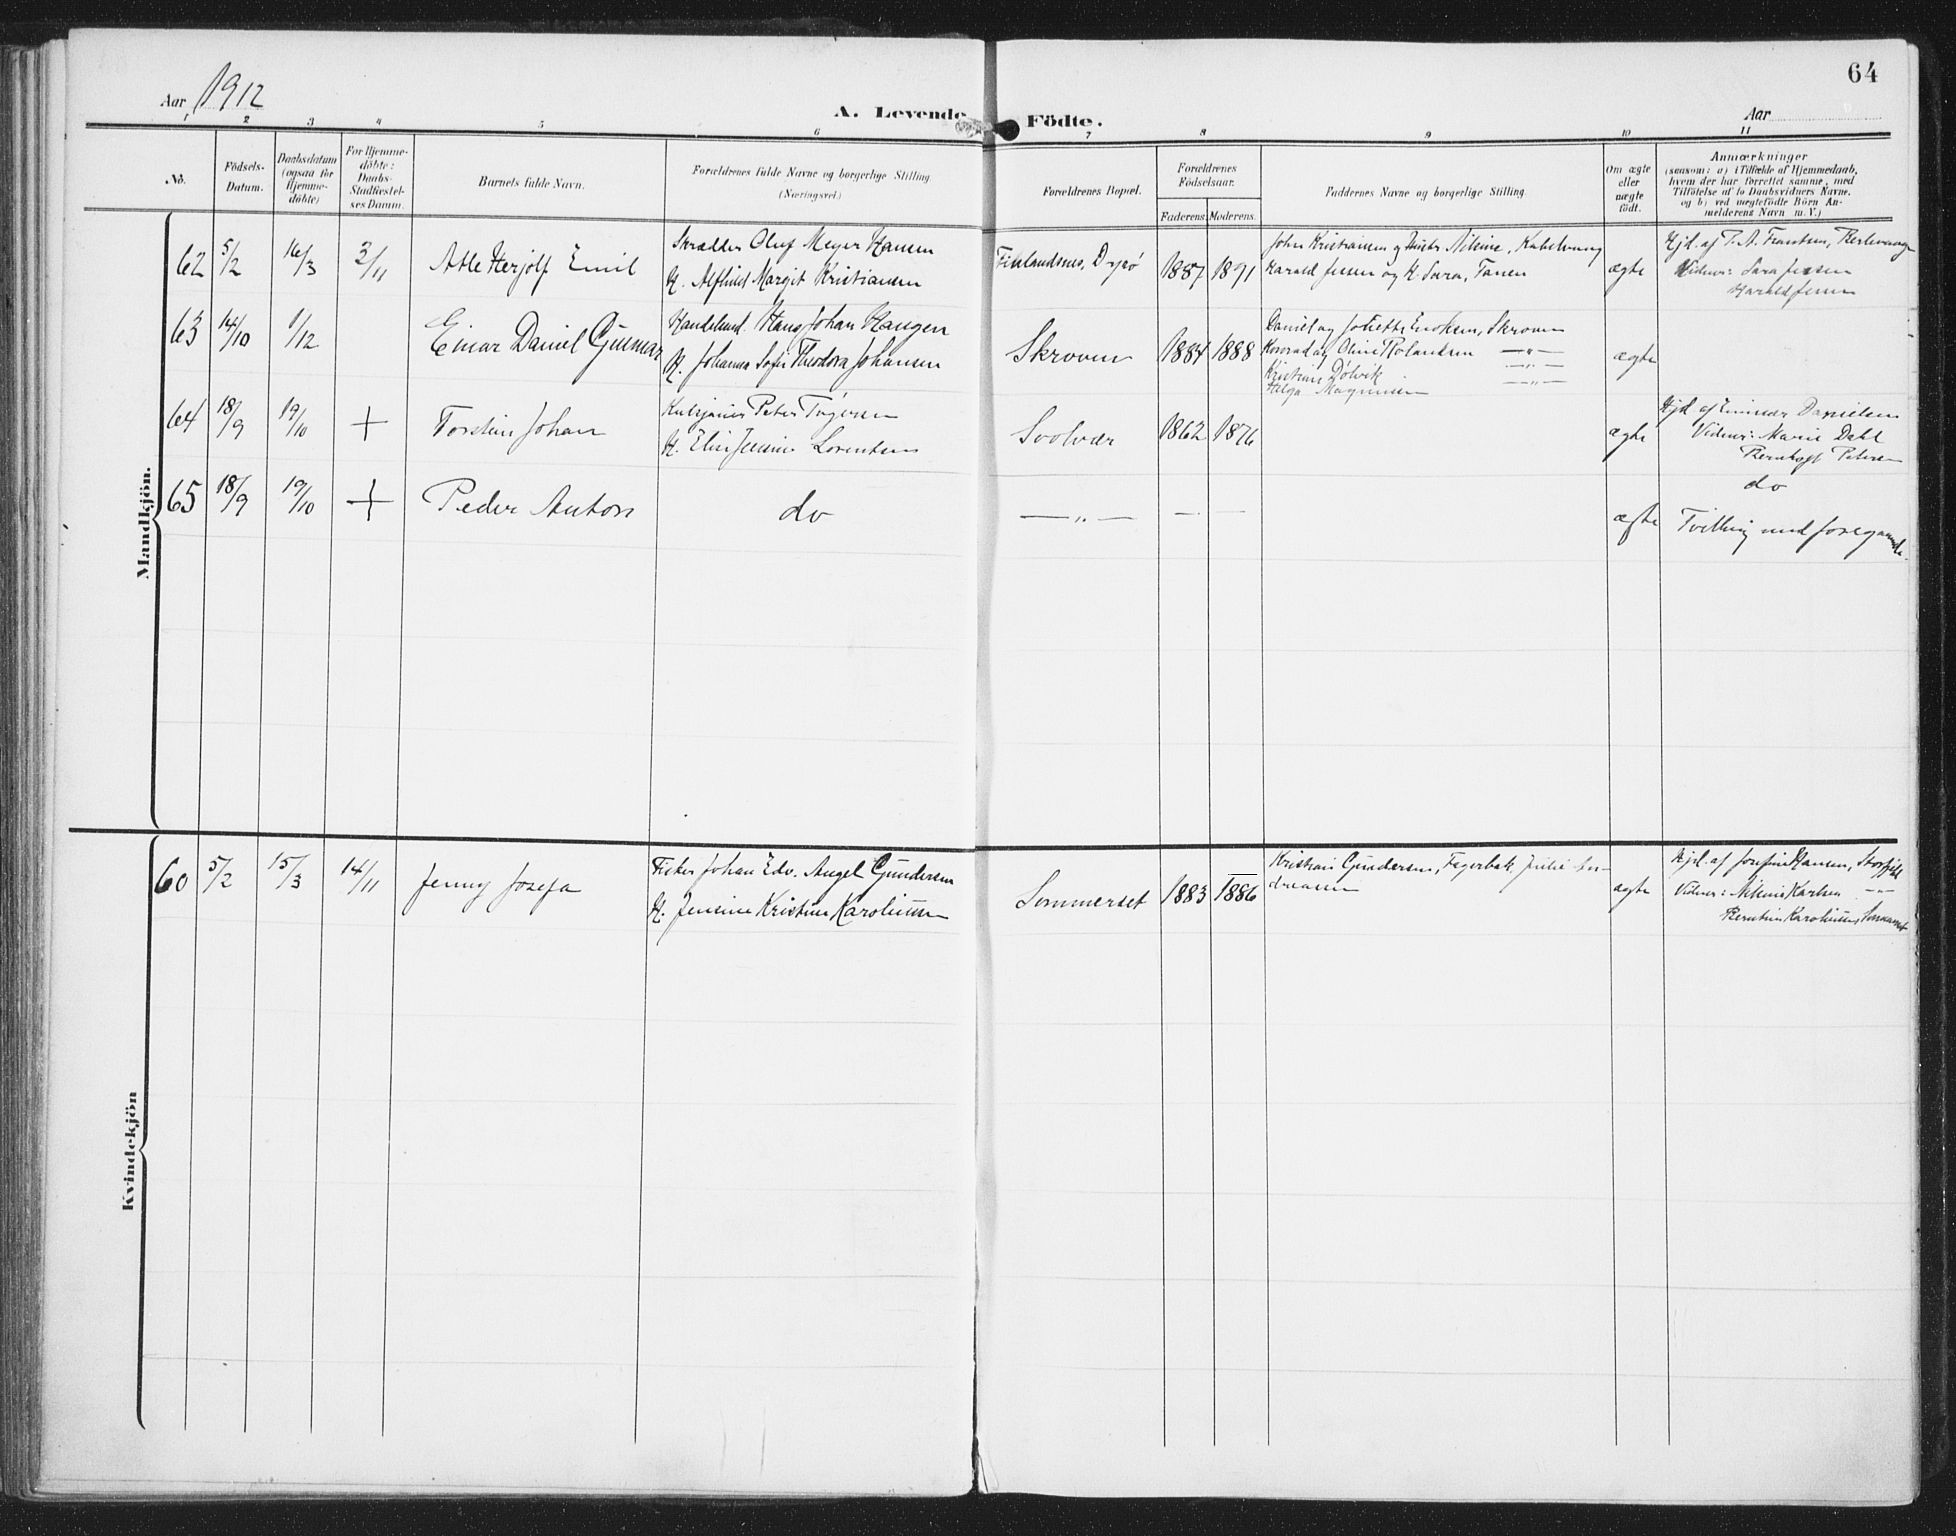 64
Aar 1912
A. Levende Födte.
Aar
1 2 3 4 5 6 7 8 9 10 11
No.
Födsels-
Datum.
Daabsdatum
(ogsaa for
Hjemme-
döbte)
For Hjemme-
döbte:
Daabs-
Stadfæstel-
ses Datum.
Barnets fulde Navn.
Forældrenes fulde Navne og borgerlige Stilling
(Næringsvei.)
Forældrenes Bopæl.
Forældrenes
Födselsaar.
Faderens. Moderens.
Faddernes Navne og borgerlige Stilling.
Om ægte
eller
uægte
födt.
Anmærkninger
(saasom: a) i Tilfælde af Hjemmedaab,
hvem der har forrettet samme, med
Tilföielse af to Daabsvidners Navne,
og b) ved uægtefödte Börn An-
melderens Navn m. V.)
Mandkjön.
62 5/2 16/3 3/11 Atle Herjolf Emil
Skrædder Oluf Meyer Hansen
H. Alfhild Margit Kristiansen
Finlandsnes, Dyrö 1887 1891
John Kristiansen og Nikine, Kabelvaag
Harald Jensen og H. Sara, Tanen
ægte
Hjd. af T. A. Frantsen,
Vidner: Sara Jensen
Harald Jensen
63 14/10 1/12 Einar Daniel Gunnar
Handelsmd. Hans Johan Haugen
H. Johanna Sofie Theodora Johansen
Skroven 1884 1888
Daniel og Enoksen, Skroven
Konrad og Oline Rolandsen —"—
Kristine Dolvik —"—
Helga Magnussen —"—
ægte
64 18/9 19/10 + Torstein Johan
Peter
H. Elin Jensine Lorentsen
Svolvær 1862 1876
ægte
Hjd. af Danielsen
Vidner: Marie Dahl
Petersen
65 18/9 19/10 + Peder Anton
do
—"— — —
ægte
do
Tvilling med foregaaende.
Kvindekjön
60 5/2 15/3 14/11 Jenny Josefa
Fisker Johan Edv. Angel Gundersen
H. Jensine Kristine Karoliussen
Sommerset 1883 1886
Kristian Gundersen, Fagerbak, Julie An-
dreasen
ægte
Hjd. af Josefine Hansen, Storfjeld
Vidner: Nikine Karlsen —"—
Karoliussen, Sommerset